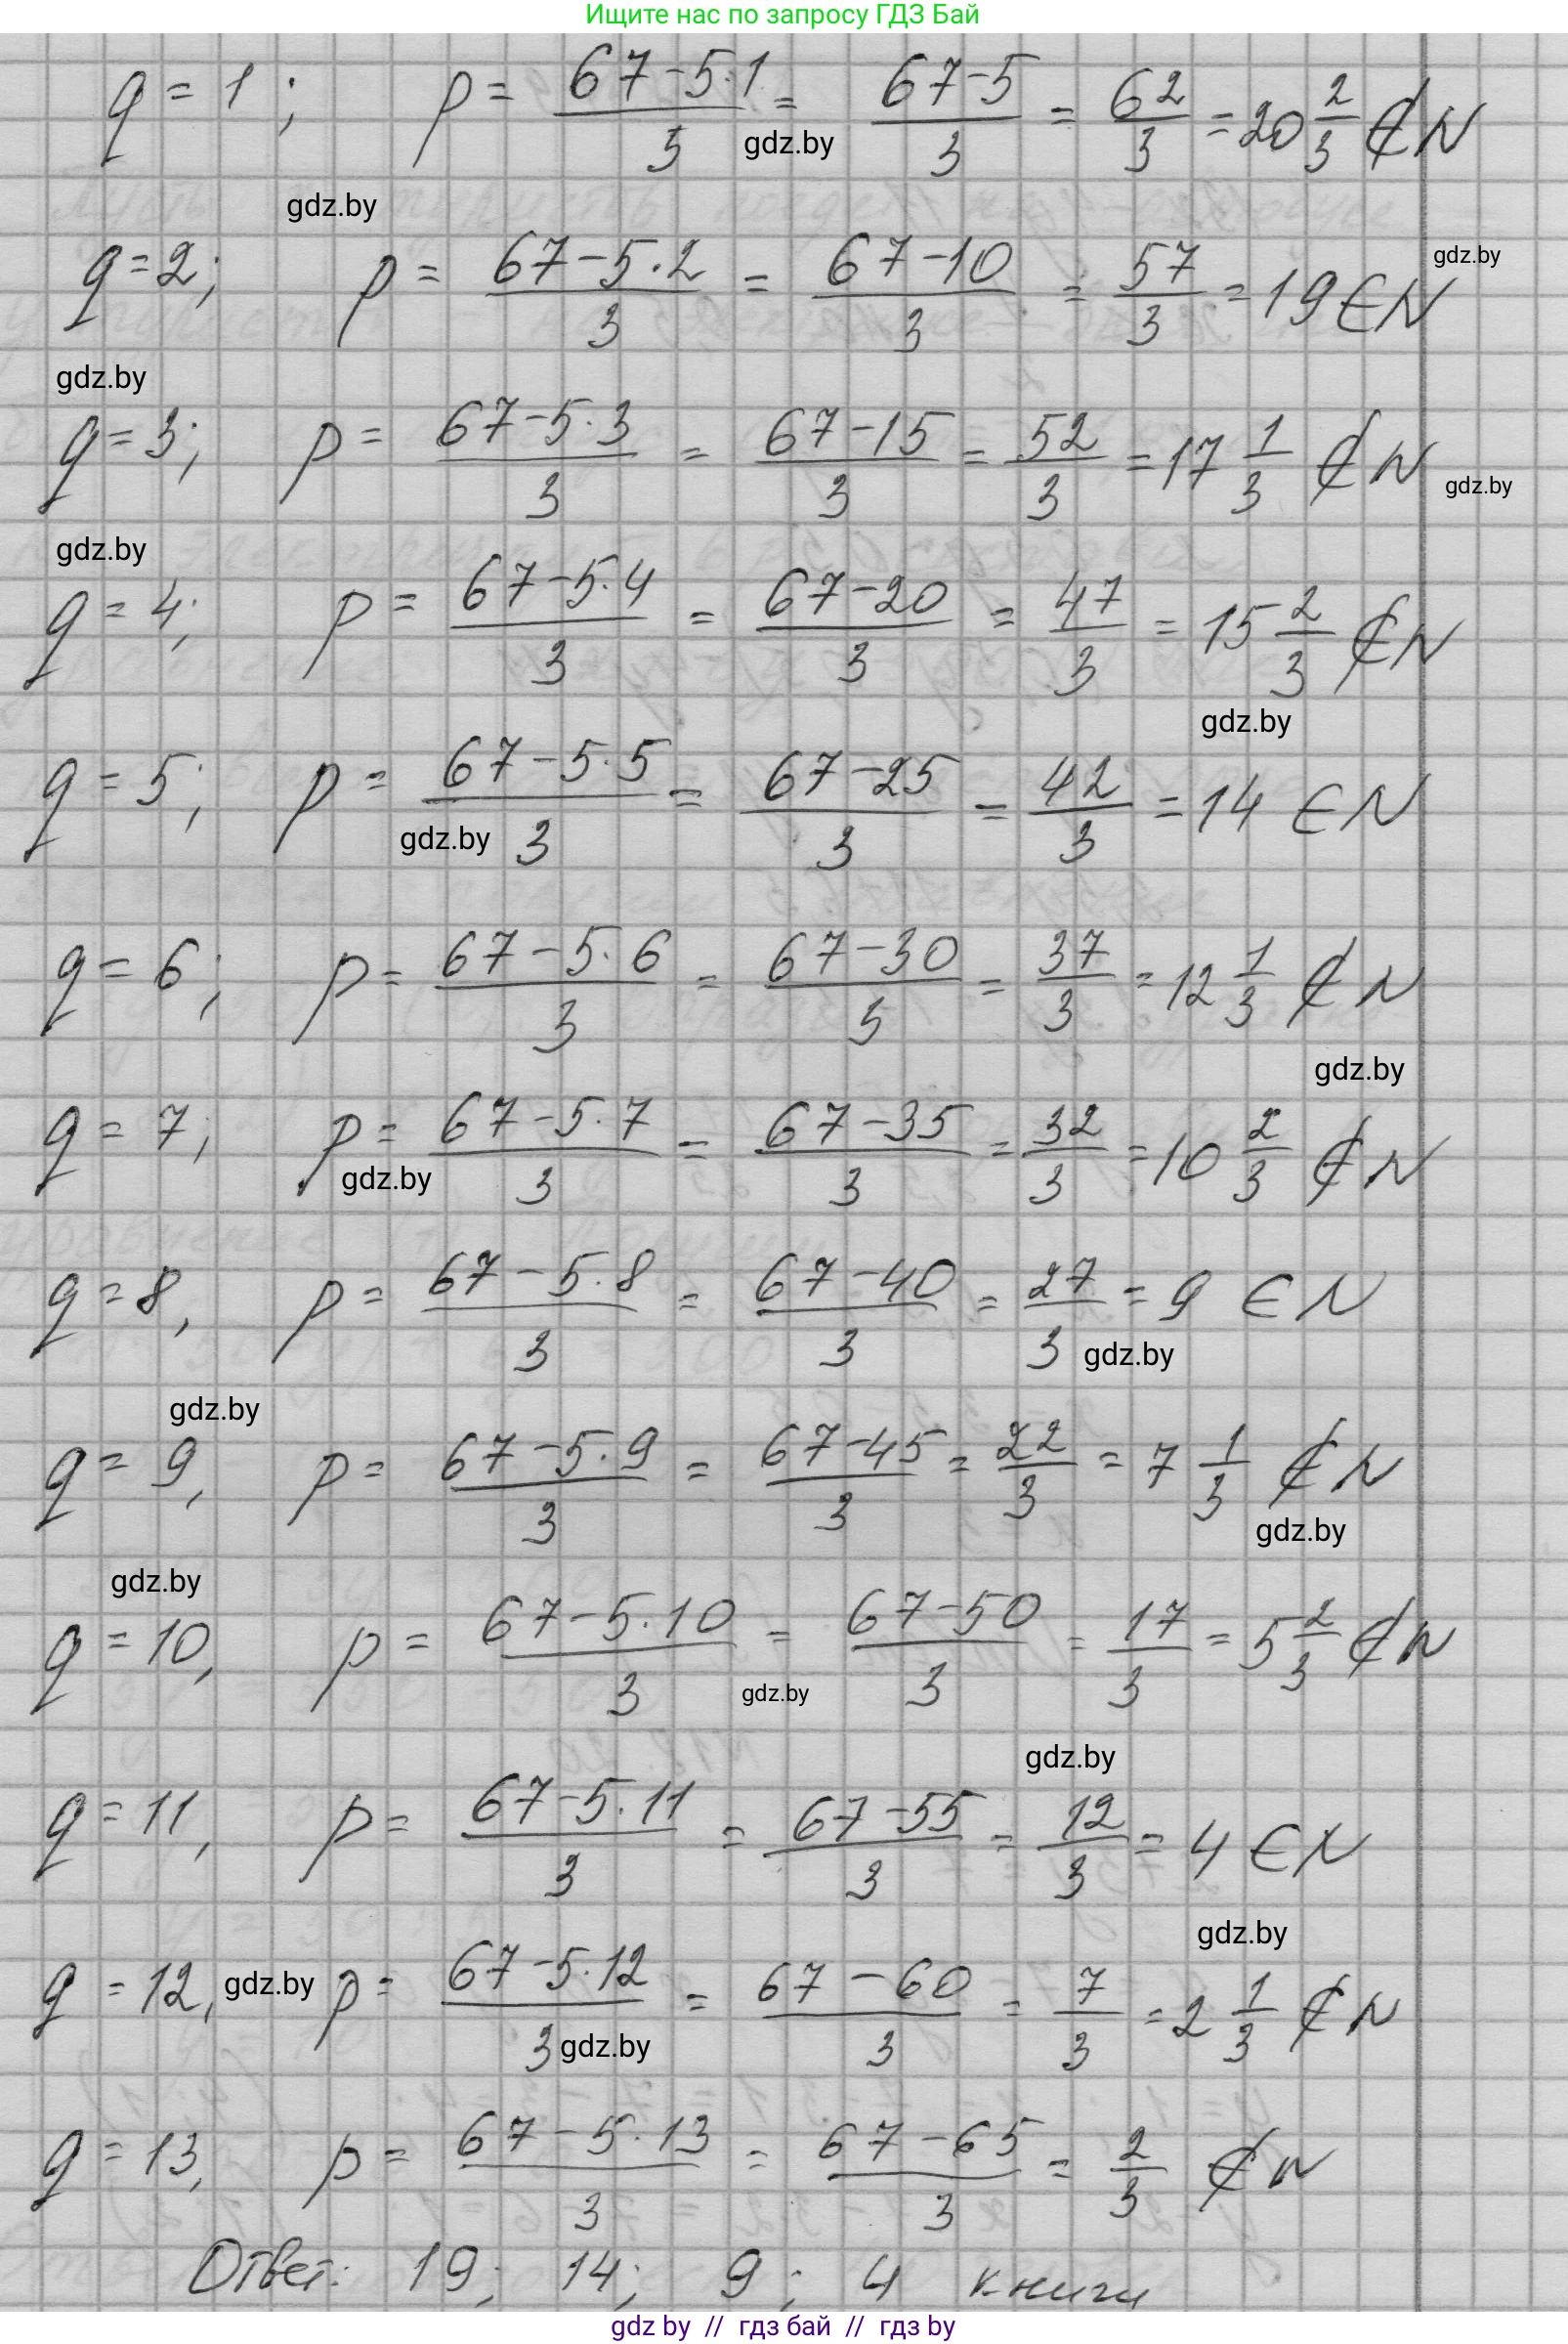 Ищите нас по запросу ГДЗ Бай
q = 1; p = (67-5·1)/3 = (67-5)/3 = 62/3 = 20 2/3 ∉ N
gdz.by
gdz.by
q = 2; p = (67-5·2)/3 = (67-10)/3 = 57/3 = 19 ∈ N
gdz.by
gdz.by
q = 3; p = (67-5·3)/3 = (67-15)/3 = 52/3 = 17 1/3 ∉ N
gdz.by
gdz.by
q = 4; p = (67-5·4)/3 = (67-20)/3 = 47/3 = 15 2/3 ∉ N
gdz.by
q = 5; p = (67-5·5)/3 = (67-25)/3 = 42/3 = 14 ∈ N
gdz.by
q = 6; p = (67-5·6)/3 = (67-30)/3 = 37/3 = 12 1/3 ∉ N
gdz.by
q = 7; p = (67-5·7)/3 = (67-35)/3 = 32/3 = 10 2/3 ∉ N
gdz.by
q = 8, p = (67-5·8)/3 = (67-40)/3 = 27/3 = 9 ∈ N
gdz.by
gdz.by
q = 9, p = (67-5·9)/3 = (67-45)/3 = 22/3 = 7 1/3 ∉ N
gdz.by
gdz.by
q = 10, p = (67-5·10)/3 = (67-50)/3 = 17/3 = 5 2/3 ∉ N
gdz.by
gdz.by
q = 11, p = (67-5·11)/3 = (67-55)/3 = 12/3 = 4 ∈ N
gdz.by
q = 12, gdz.by p = (67-5·12)/3 = (67-60)/3 = 7/3 = 2 1/3 ∉ N
gdz.by
q = 13, p = (67-5·13)/3 = (67-65)/3 = 2/3 ∉ N
Ответ: 19; 14; 9; 4 книги
gdz.by // гдз бай // гдз by